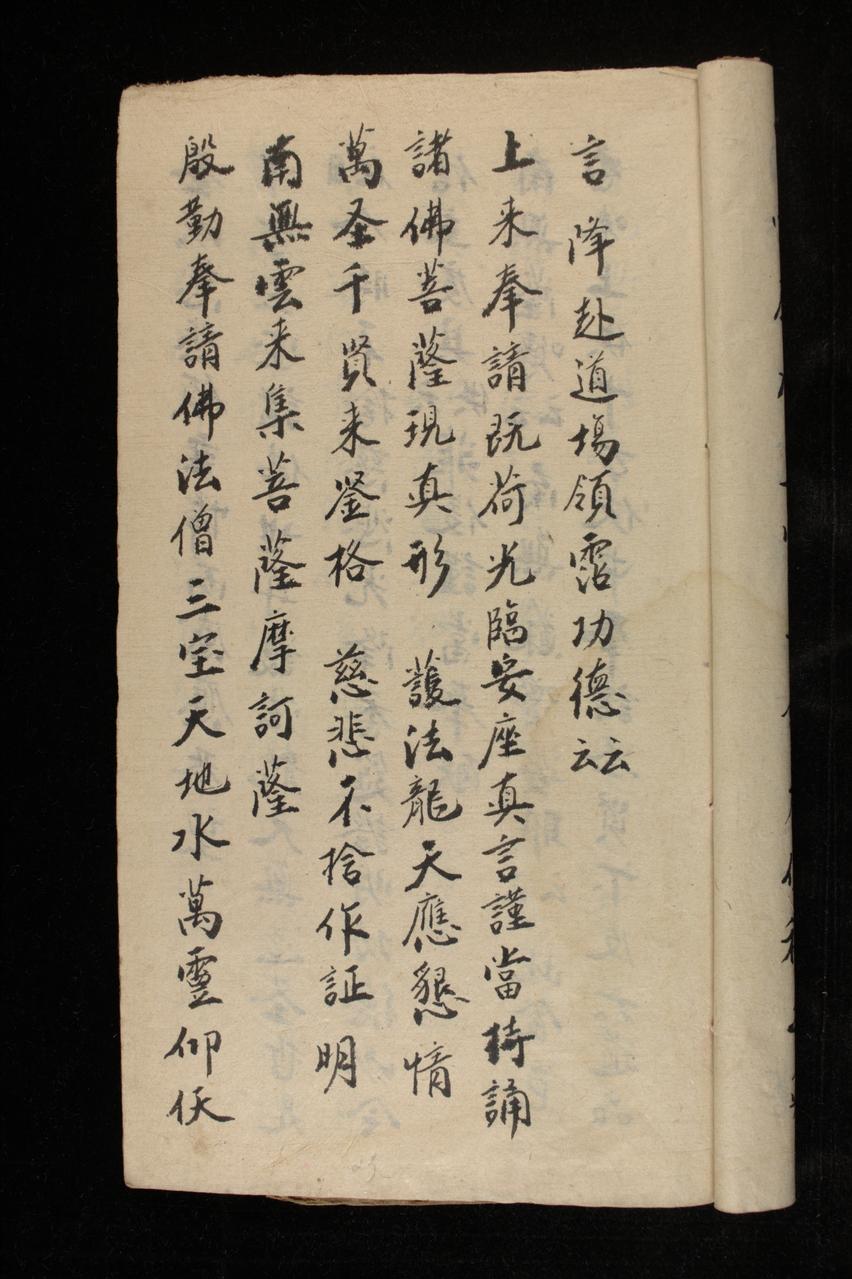 言降赴道場領霑功德云云
上来奉請既荷光臨安座真言謹當持誦
諸佛菩薩現真形 護法龍天應懇情
萬圣千賢来鉴格 慈悲不捨作証明
南無雲来集菩薩摩訶薩
殷勤奉請佛法僧三宝天地水萬霊仰仗